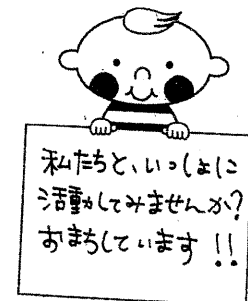 私たちと、いっしょに
活動してみませんか?
おまちしています!!